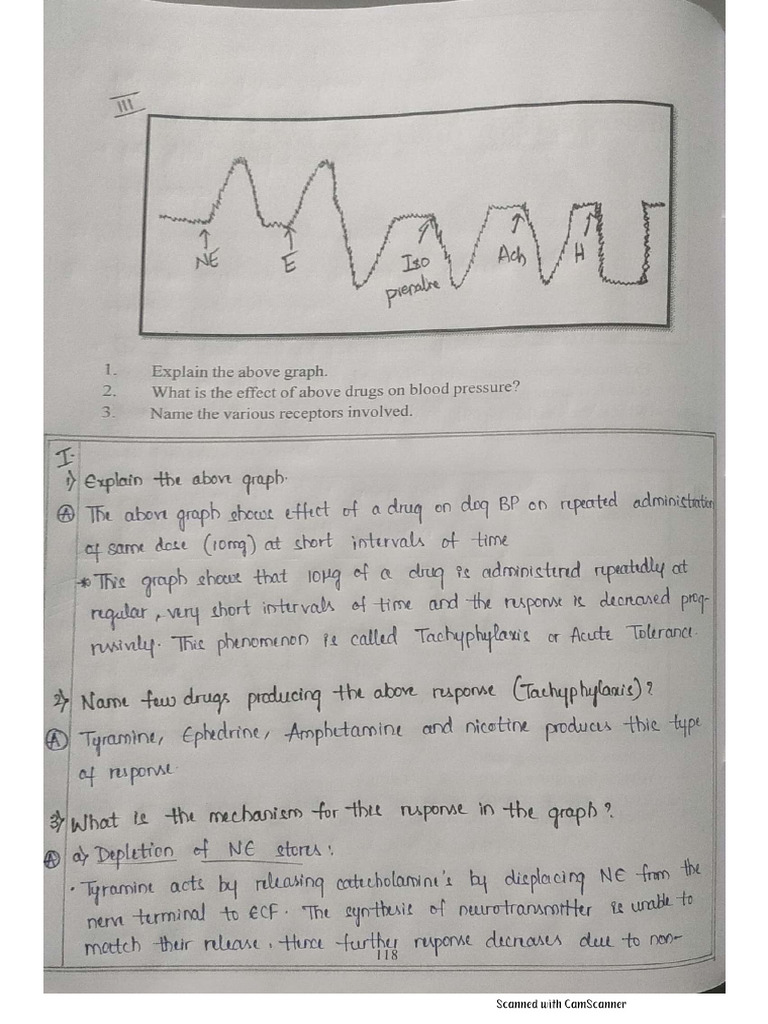 III
NE
E
Iso
prenalne
Ach
H
1. Explain the above graph.
2. What is the effect of above drugs on blood pressure?
3. Name the various receptors involved.
I.
1) Explain the above graph.
(A) The above graph shows effect of a drug on dog BP on repeated administration
of same dose (10mg) at short intervals of time
* This graph shows that 10μg of a drug is administered repeatedly at
regular, very short intervals of time and the response is decreased prog-
ressively. This phenomenon is called Tachyphylaxis or Acute Tolerance.
2) Name few drugs producing the above response (Tachyphylaxis)?
(A) Tyramine, Ephedrine, Amphetamine and nicotine produces this type
of response.
3) What is the mechanism for this response in the graph?
(A) a) Depletion of NE stores:
• Tyramine acts by releasing catecholamine's by displacing NE from the
nerve terminal to ECF. The synthesis of neurotransmitter is unable to
match their release. Hence further response decreases due to non-
118
Scanned with CamScanner